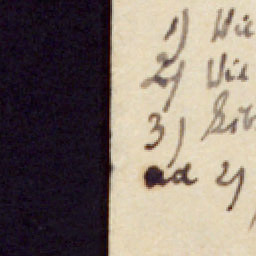 1) Wie
2) Wie
3) Gib
ad 2)